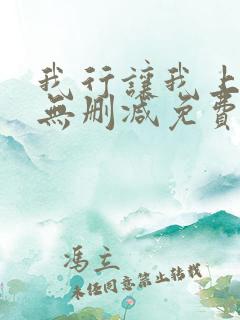 我行讓我上
無刪減免費
馮立
未經同意禁止轉載